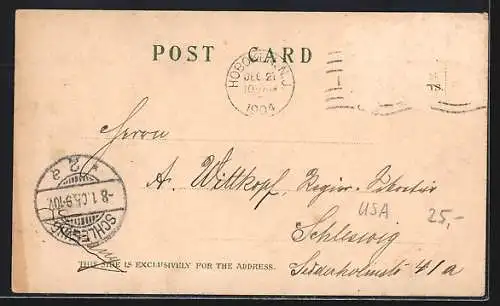 POST CARD
HOBOKEN, N.J.
DEC 21
1904
TS.
Herrn
A. Wittkopf, Regier. Sekretär
USA 25,-
Schleswig
SCHLESWIG
* 2 a
-8.1.05.9-10V.
THIS SIDE IS EXCLUSIVELY FOR THE ADDRESS.
Suderholmstr. 41 a